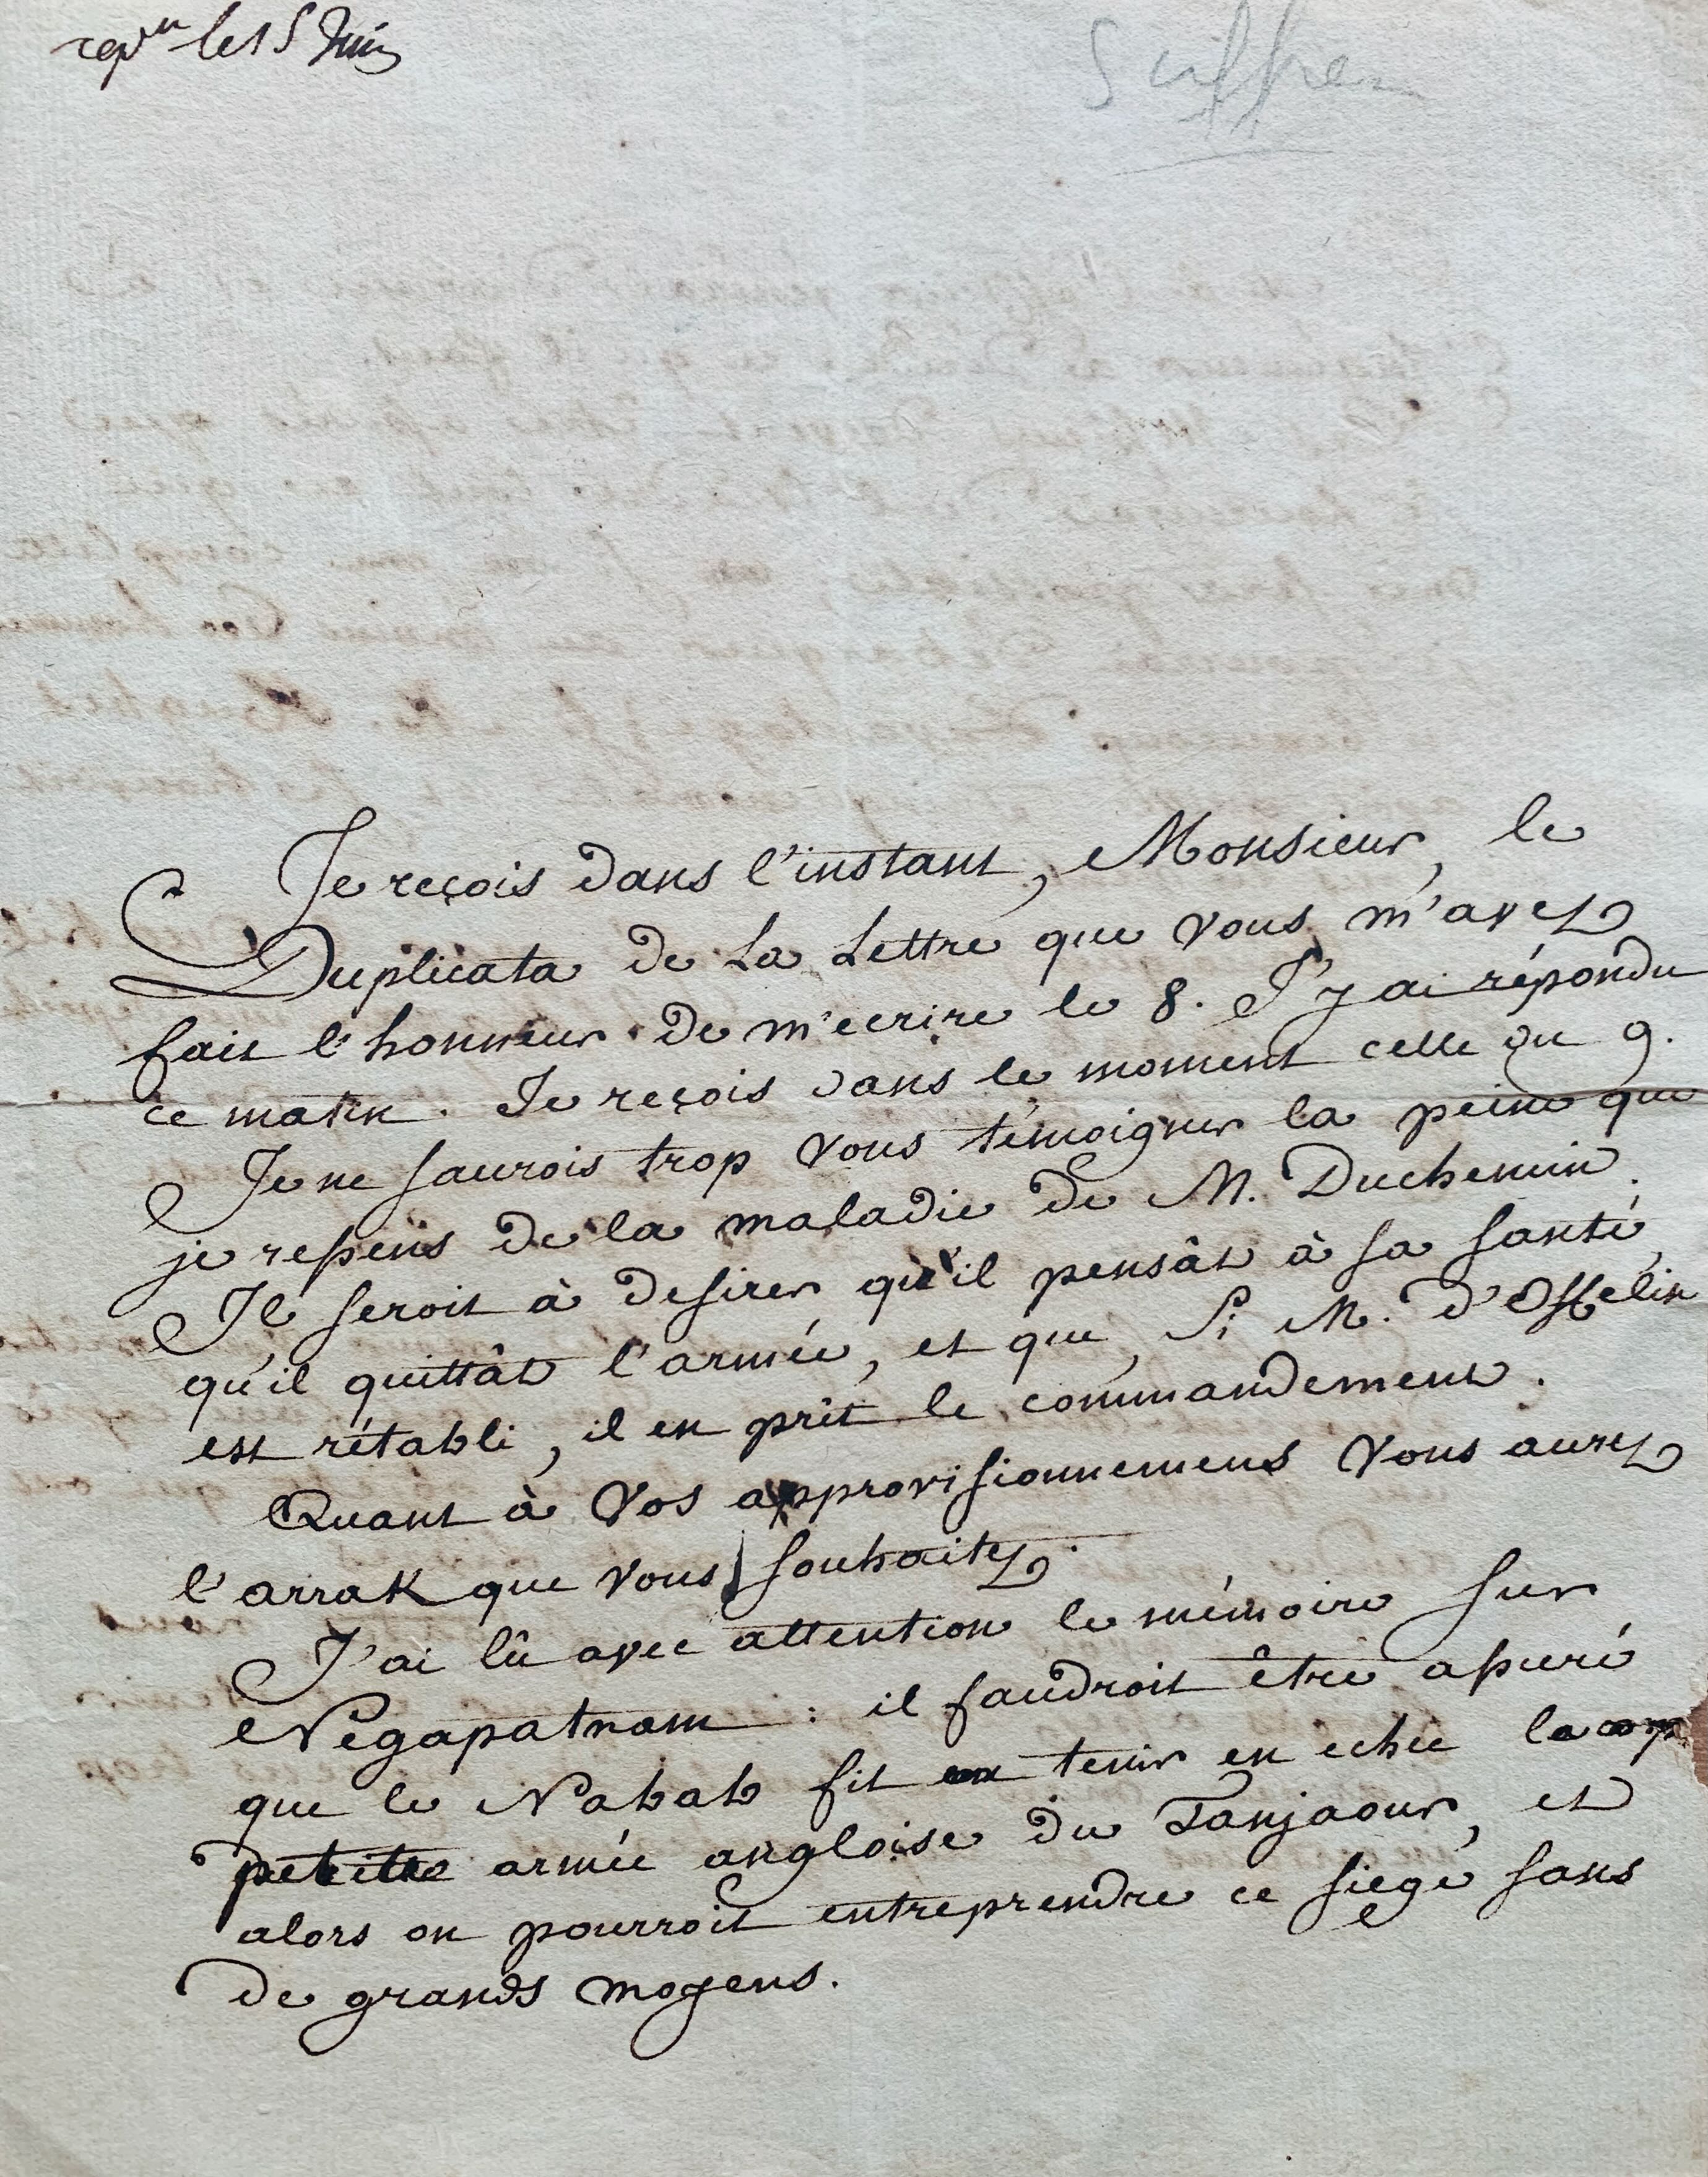 le 15 Juin
Suffren
Je reçois dans l'instant, Monsieur, le
Duplicata de La Lettre que vous m'avez
fait l'honneur de m'ecrire le 8. J'y ai répondu
ce matin. Je reçois dans le moment celle du 9.
Je ne saurois trop vous témoigner la peine que
je ressens de la maladie de M. Duchemin.
Il seroit à desirer qu'il pensât à sa santé,
qu'il quittât l'armée, et que, si M. d'Offelin
est rétabli, il en prît le commandement.
Quant à Vos approvisionnemens Vous aurez
l'arrak que vous souhaitez.
J'ai lû avec attention le mémoire sur
Negapatnam : il faudroit être assuré
que le Nabab fit tenir en echec la
petite armée angloise du Tanjaour, et
alors on pourroit entreprendre ce siege sans
de grands moyens.